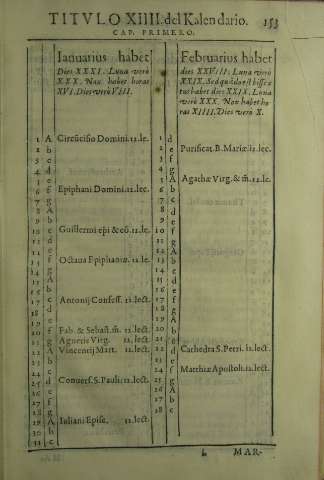 TITVLO XIIII. del Kalendario. 153
CAP. PRIMERO.
Ianuarius habet
Dies XXXI. Luna verò
XXX. Nox habet horas
XVI. Dies verò VIII.
1 A Circũcisio Domini. 12. le.
2 b
3 c
4 d
5 e
6 f Epiphani Domini. 12. lec.
7 g
8 A
9 b
10 c Guillermi epi & cõ. 12. le.
11 d
12 e
13 f Octaua Epiphaniæ. 12. le.
14 g
15 A
16 b
17 c Antonij Confess. 12. lect.
18 d
19 e
20 f Fab. & Sebast. m̃. 12. lect.
21 g Agnetis Virg. 12. lect.
22 A Vincentij Mart. 12. lect.
23 b
24 c
25 d Conuers. S. Pauli: 12. lect.
26 e
27 f
28 g
29 A Iuliani Episc. 12. lect.
30 b
31 c
Februarius habet
dies XXVIII. Luna verò
XXIX. Sed quãdo est bissex
tus habet dies XXIX. Luna
verò XXX. Nox habet ho
ras XIIII. Dies verò X.
1 d
2 e Purificat. B. Mariæ. 12. lec.
3 f
4 g
5 A Agathæ Virg. & m̃. 12. lec.
6 b
7 c
8 d
9 e
10 f
11 g
12 A
13 b
14 c
15 d
16 e
17 f
18 g
19 A
20 b
21 c
22 d Cathedra S. Petri. 12. lect.
23 e
24 f Matthiæ Apostoli. 12. lect.
25 g
26 A
27 b
28 c
MAR-